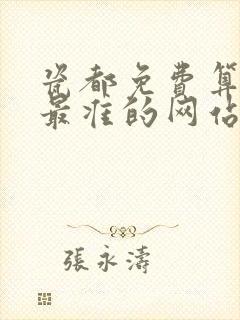 瓷都免费算
最准的网站
張永濤